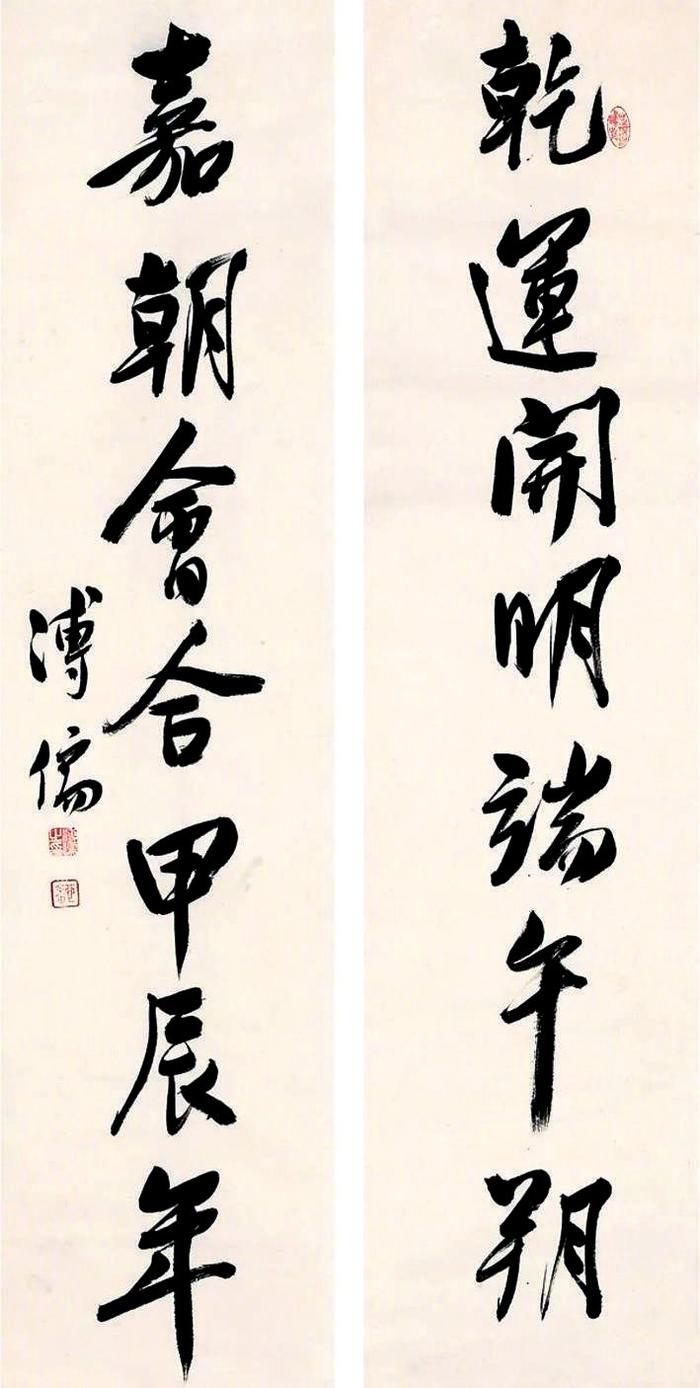 乾運開明端午朔
嘉朝會合甲辰年
溥儒